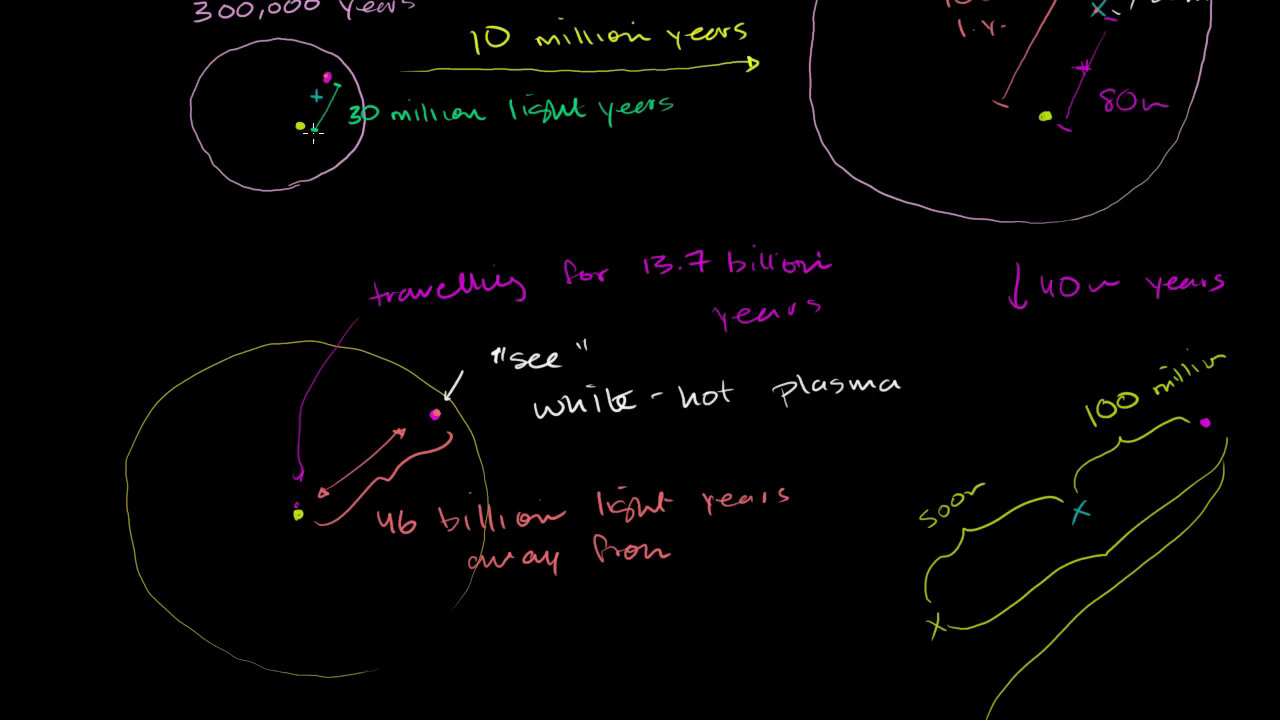 300,000 years
10 million years
30 million light years
l.y.
80m
travelling for 13.7 billion
years
40m years
"see"
white-hot plasma
100 million
500m
46 billion light years
away from